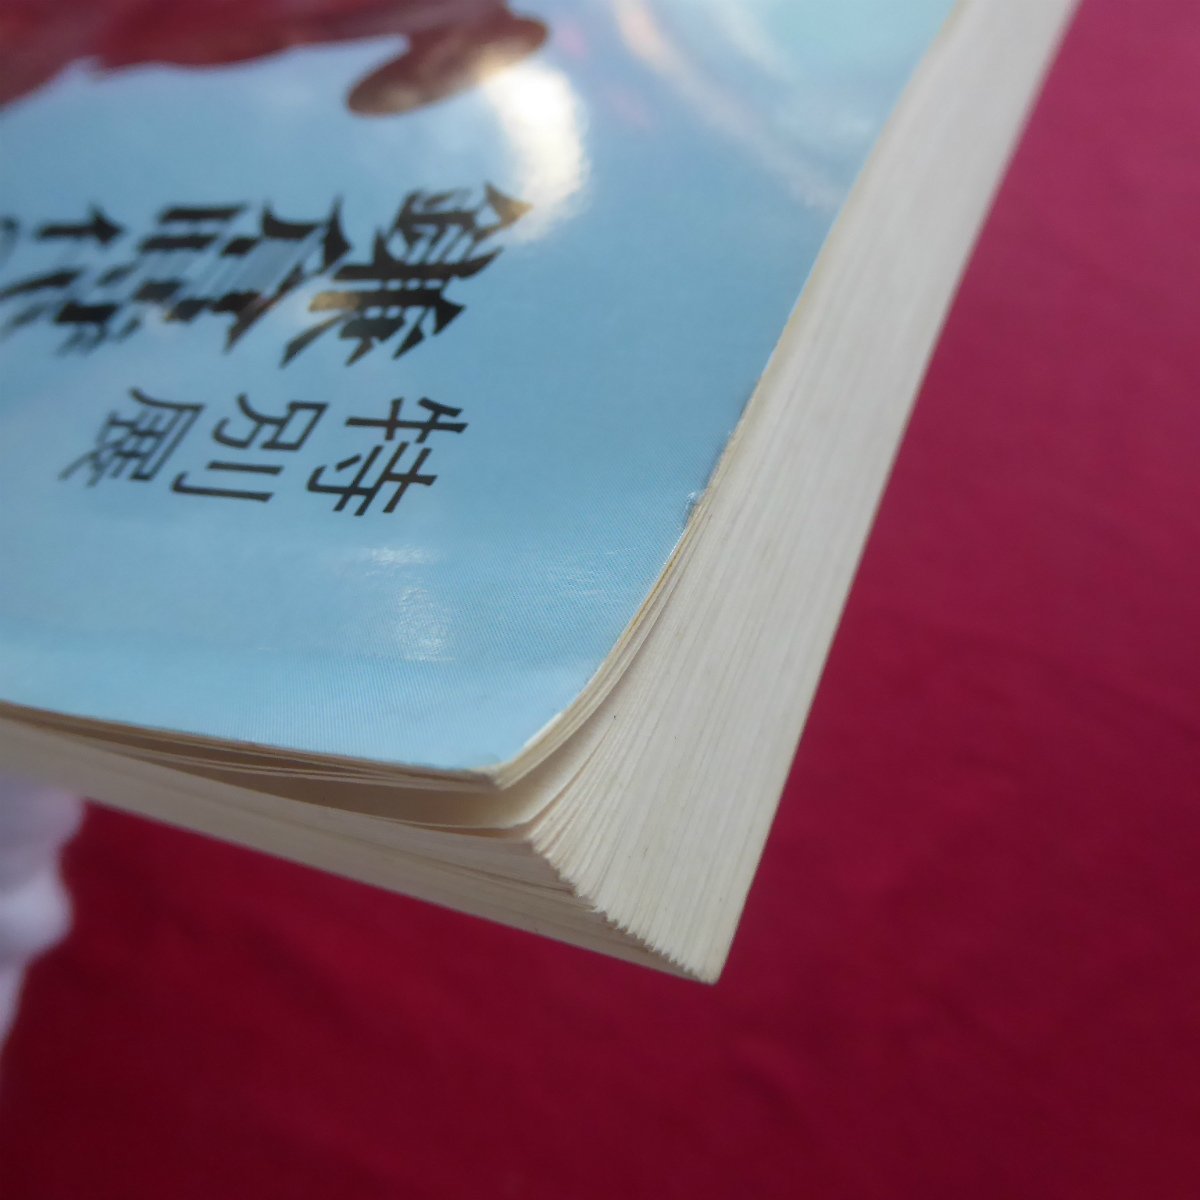 特別展
鎌倉時代の